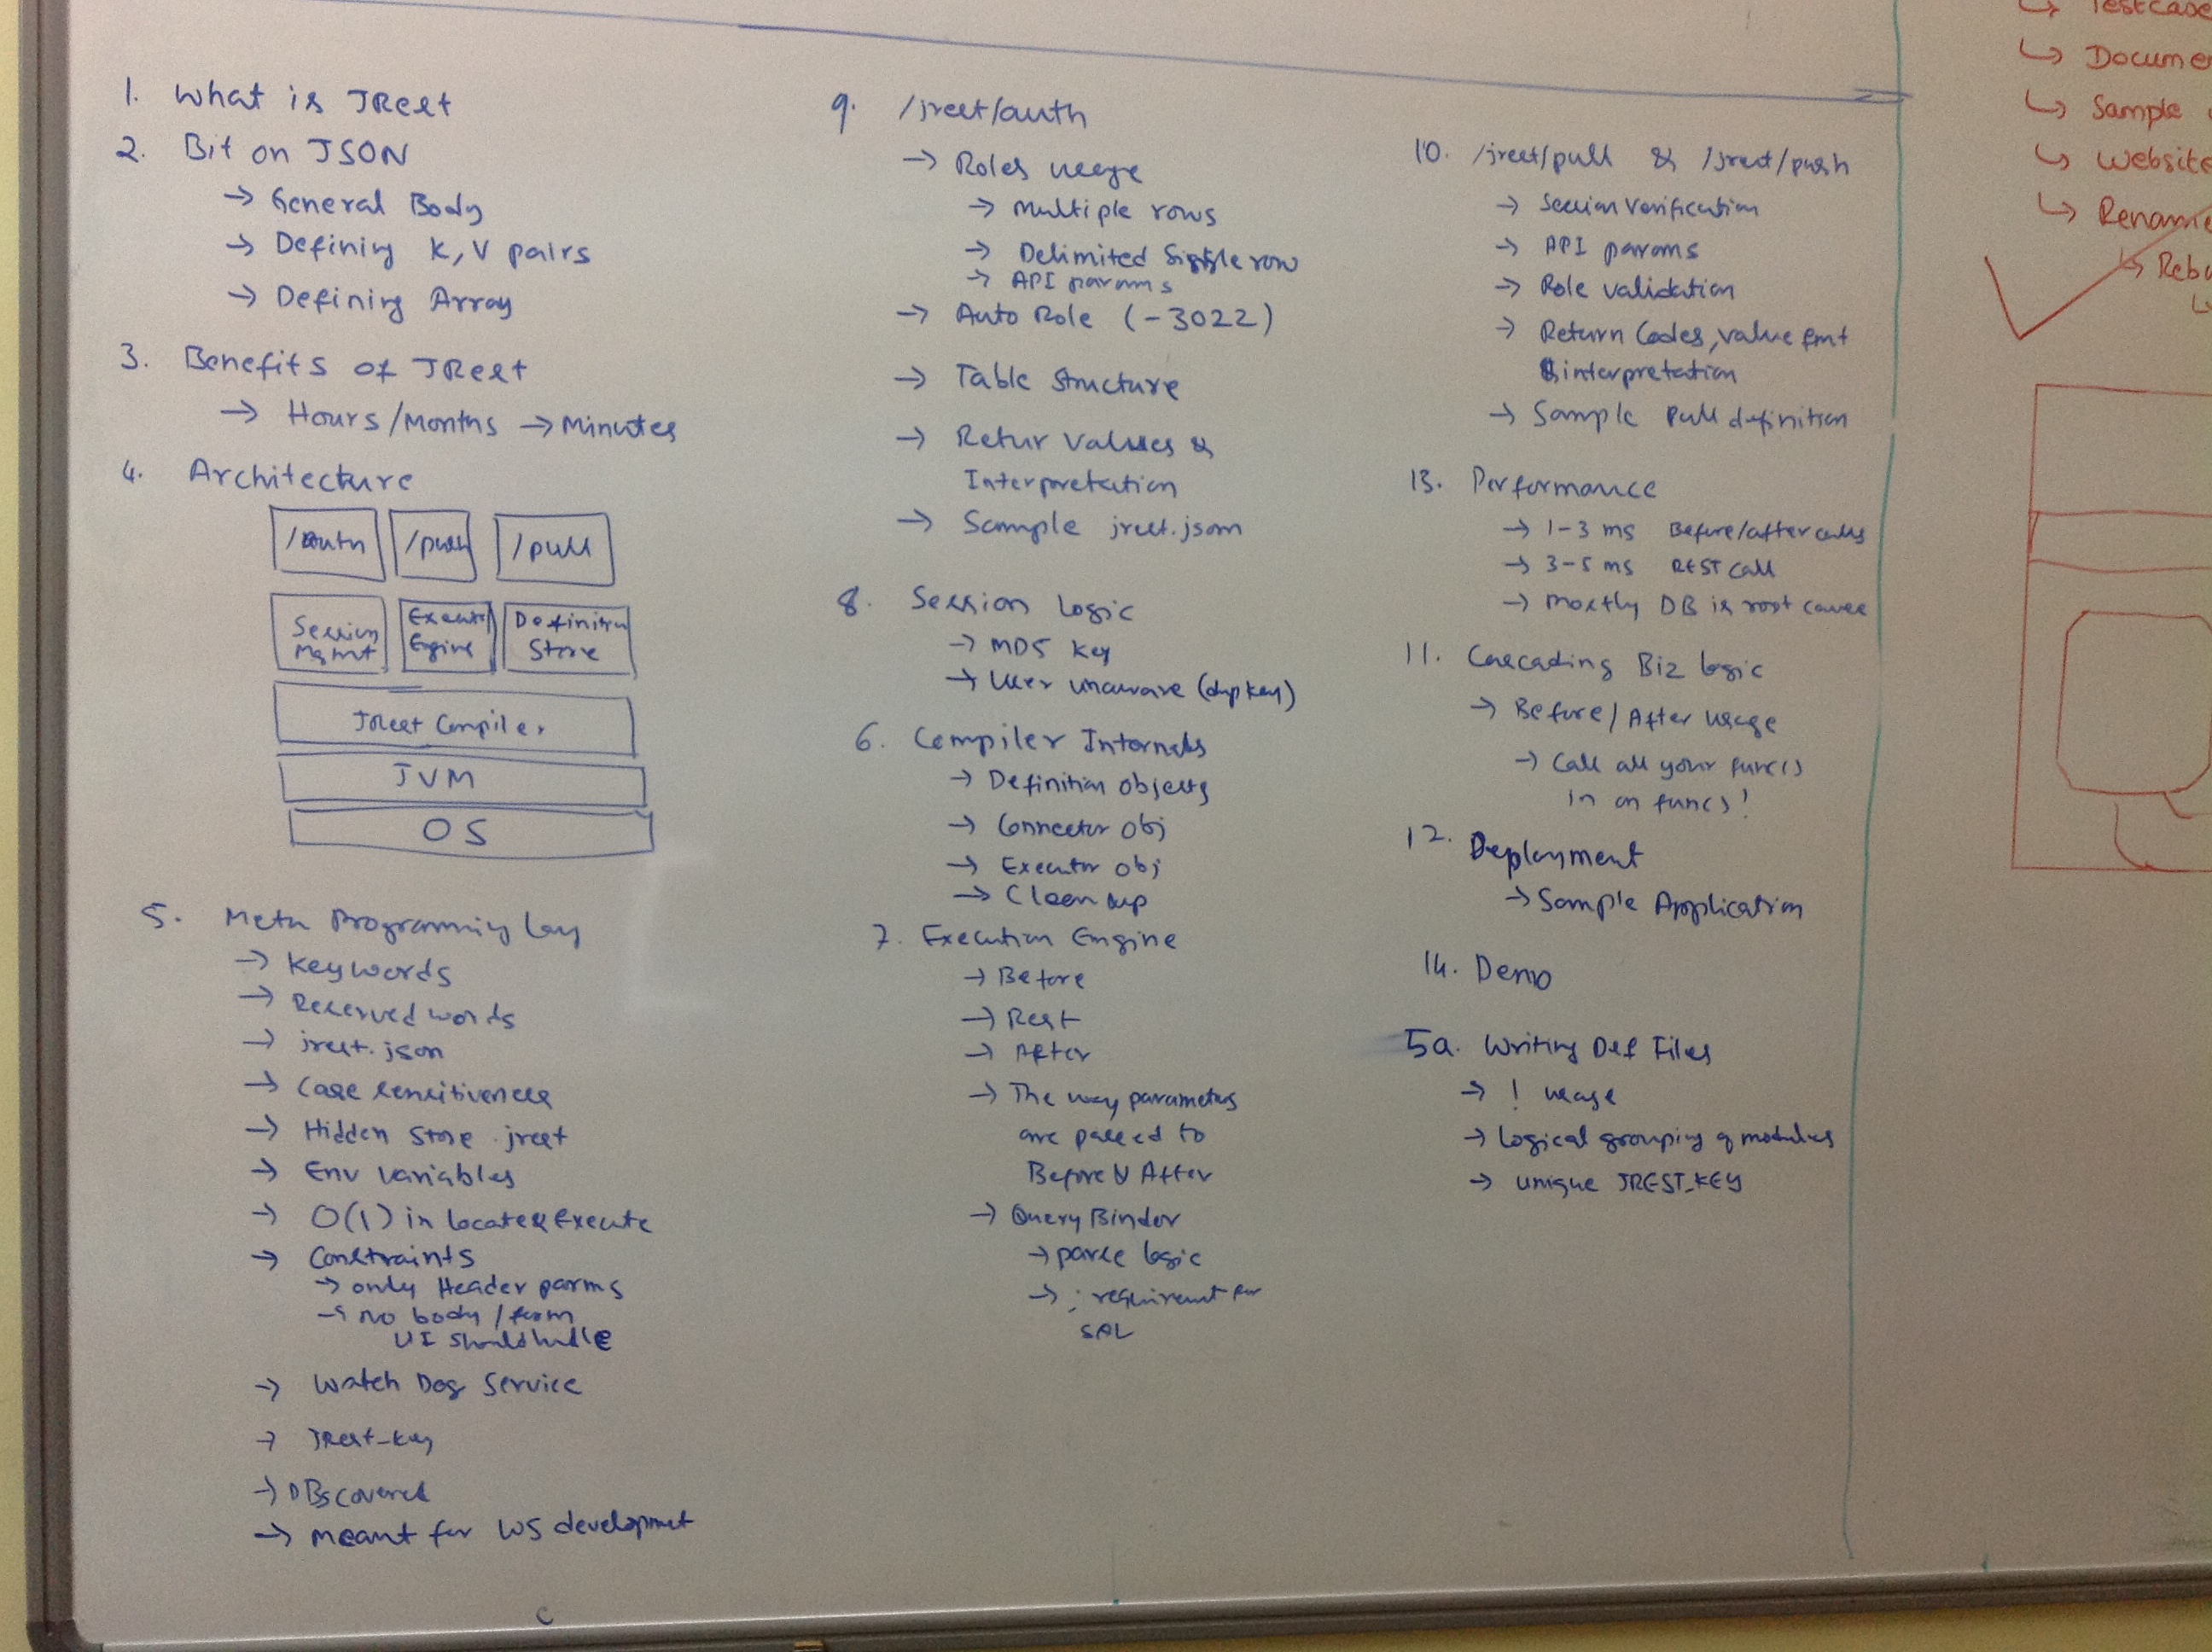 1. What is JRest
2. Bit on JSON
→ General Body
→ Defining K, V pairs
→ Defining Array
3. Benefits of JRest
→ Hours/Months → Minutes
4. Architecture
/Auth /push /pull
Session Mgmt
Execution Engine
Definition Store
JRest Compiler
JVM
OS
5. Meta Programming Lang
→ Keywords
→ Reserved words
→ jrest.json
→ Case sensitiveness
→ Hidden Store .jrest
→ Env variables
→ O(1) in locate & Execute
→ Constraints
→ only Header parms
→ no body / form
UI should handle
→ Watch Dog Service
→ JRest_key
→ DBs covered
→ meant for WS development
9. /jrest/auth
→ Roles usage
→ multiple rows
→ Delimited Single row
→ API params
→ Auto Role (-3022)
→ Table Structure
→ Retur Values &
Interpretation
→ Sample jrest.json
8. Session Logic
→ MD5 key
→ User unaware (dup key)
6. Compiler Internals
→ Definition objects
→ Connector obj
→ Executor obj
→ Clean up
7. Execution Engine
→ Before
→ Rest
→ After
→ The way parameters
are passed to
Before & After
→ Query Binder
→ parse logic
→ ; requirement for
SQL
10. /jrest/pull & /jrest/push
→ Session Verification
→ API params
→ Role validation
→ Return Codes, value fmt
& interpretation
→ Sample Pull definition
13. Performance
→ 1-3 ms Before/after calls
→ 3-5 ms REST call
→ mostly DB is root cause
11. Cascading Biz logic
→ Before / After usage
→ Call all your func()
in on funcs!
12. Deployment
→ Sample Application
14. Demo
5a. Writing Def Files
→ ! usage
→ Logical grouping of modules
→ unique JREST_KEY
↳ Testcase
↳ Docume
↳ Sample
↳ Website
↳ Rename
↳ Rebu